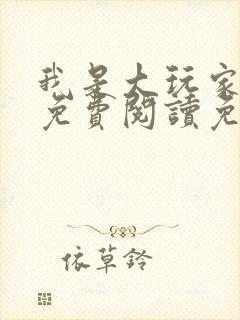 我是大玩家
免費閱讀免
依草鈴